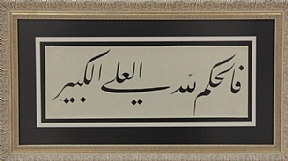 فالحكم لله العلي الكبير